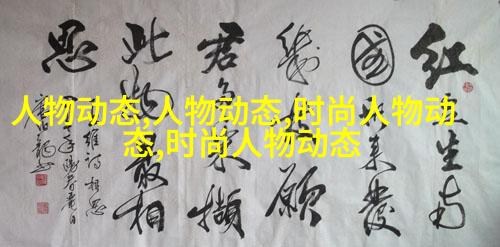 人物动态,人物动态,时尚人物动
态,时尚人物动态
红豆生南
國春来發
幾枝願
君多采撷
此物最相
思
維詩相思